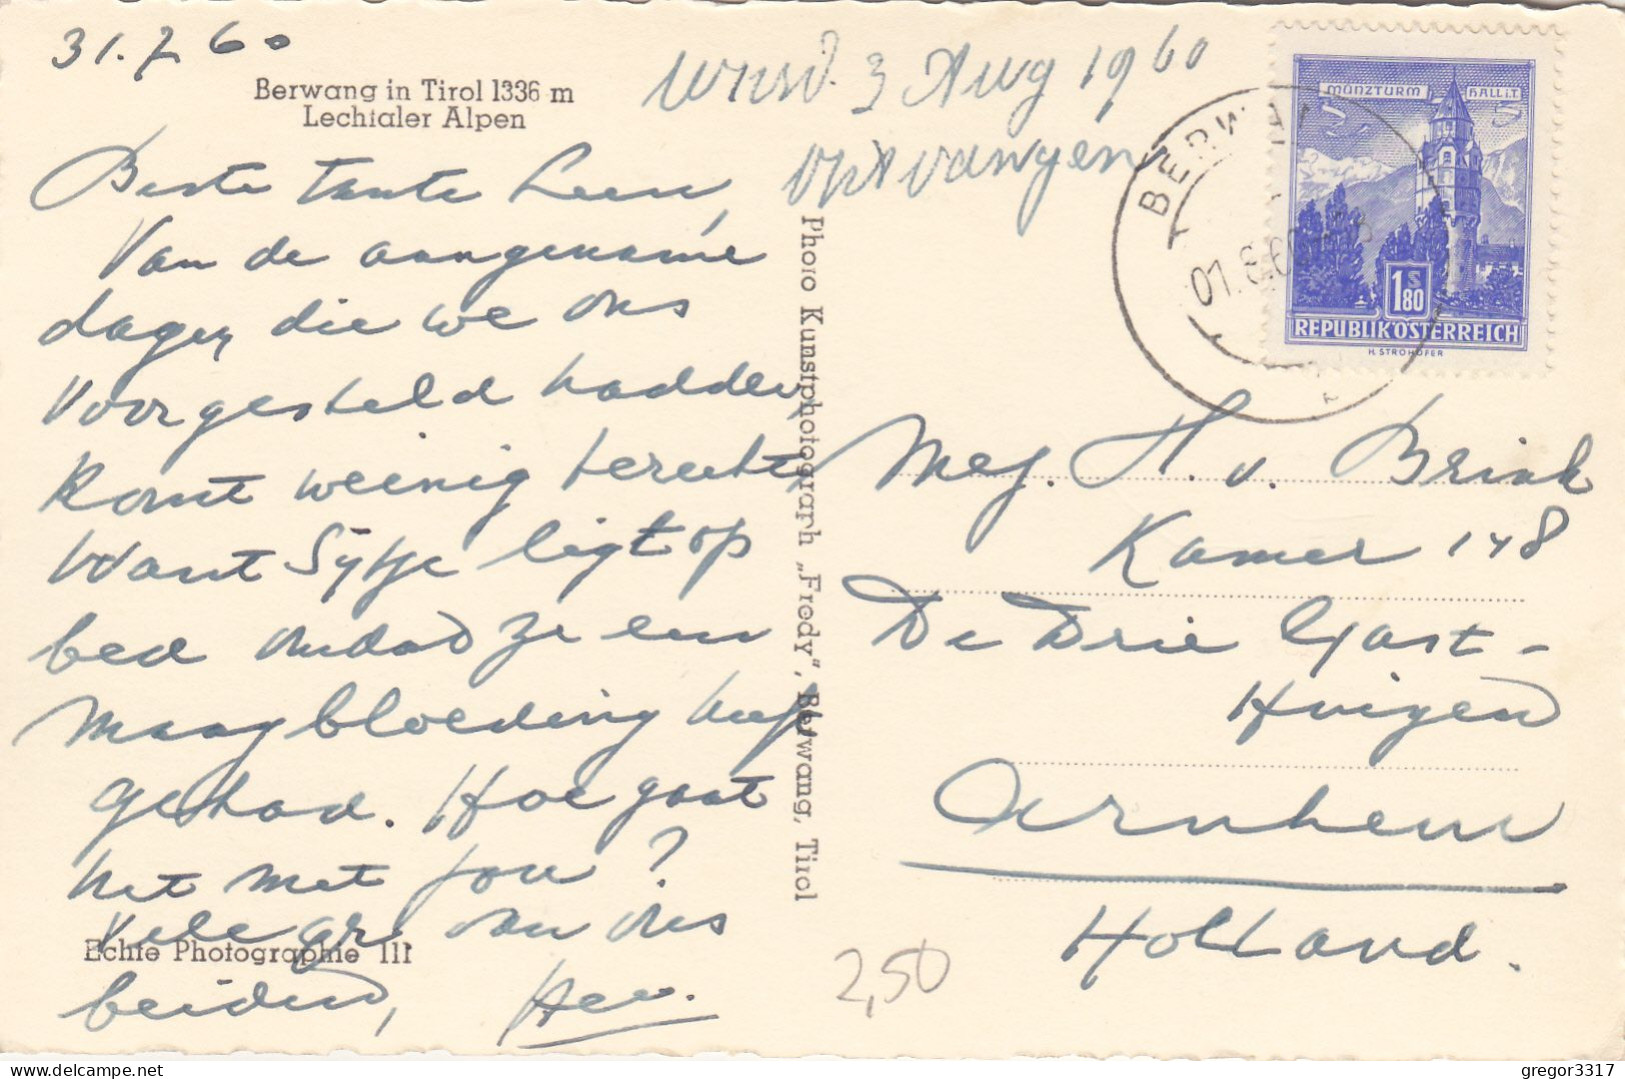 31.7 60
Berwang in Tirol 1336 m
Lechtaler Alpen
Beste Tante Leen,
Van de aangename
dagen die we ons
Voorgesteld hadden,
komt weinig terecht,
Want Sijtje ligt op
bed omdat ze een
Maagbloeding heeft
gehad. Hoe gaat
het met jou?
Vele gr. van ons
beiden,
Echte Photographie III
Photo Kunstphotograph „Frody", Berwang, Tirol
3 Aug 1960
ontvangen
MÜNZTURM HALL i.T.
1 S 80
REPUBLIK ÖSTERREICH
H. STROHOFER
BERWA
01.8.60
Mej. H. v. Brink
Kamer 148
De Drie Gast-
Huizen
Arnhem
Holland.
2,50
gregor3317